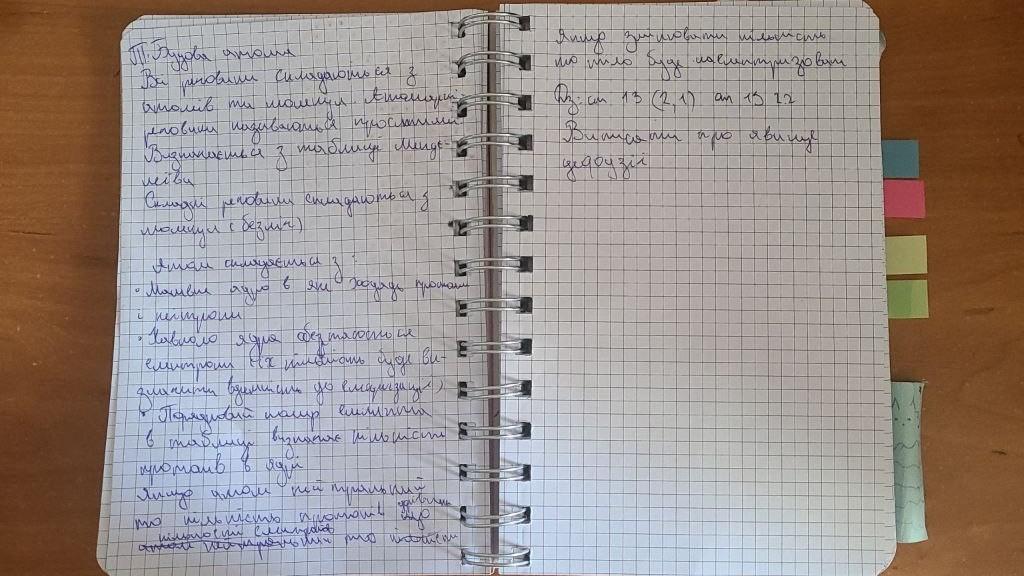 Т: Будова атома
Всі речовини складаються з
атомів та молекул. Атомарні
речовини називаються простими
Визначається з таблиці Менде-
лєєва
Складні речовини складаються з
молекул (безліч)
Атом складається з:
• Масивне ядро в яке входять протони
і нейтрони
• Навколо ядра обертаються
електрони (їх кількість буде ви-
значати здатність до електризації)
• Порядковий номер елемента
в таблиці визначає кількість
протонів в ядрі
Якщо атом нейтральний
то кількість протонів дорівнює
кількості електронів
то кількість
Якщо змінювати кількість
то тіло буде наелектризован
Дз: ст 13 (2,1) ст 19 22
Виписати про явище
дифузії